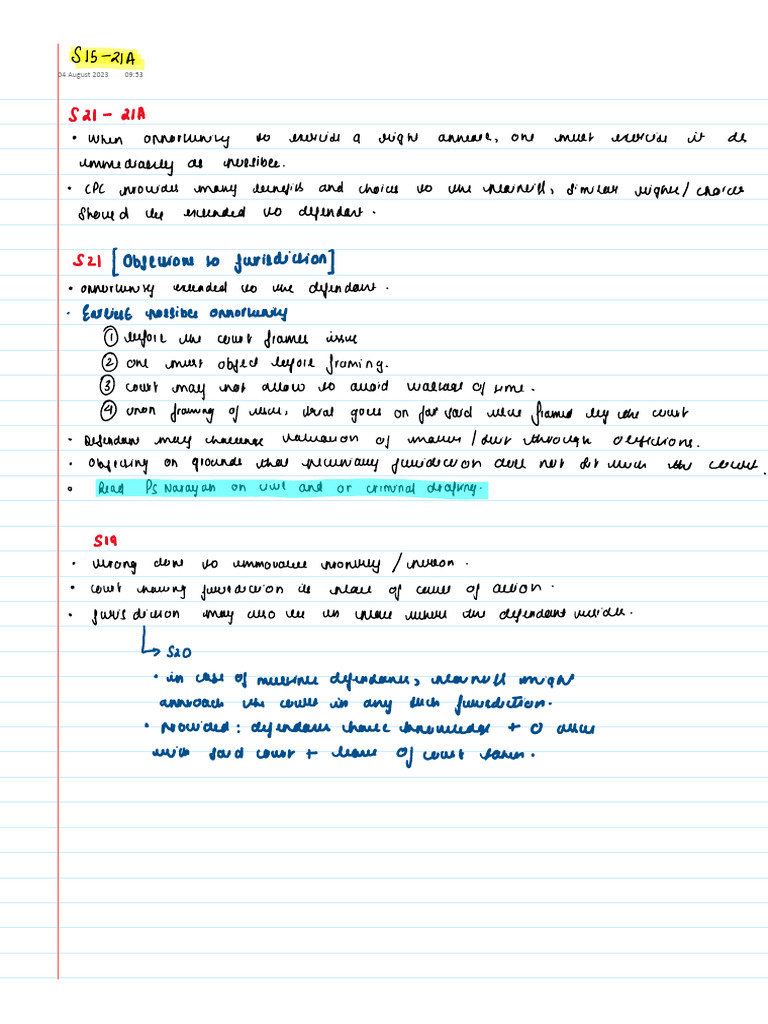 S15-21A
04 August 2023 09:53
S21 - 21A
• When opportunity to exercise a right appears, one must exercise it as
immediately as possible.
• CPC provides many benefits and choices to the plaintiff, similar rights/choices
should be extended to defendant.
S21 [Objections to jurisdiction]
• opportunity extended to the defendant.
• Earliest possible opportunity
① before the court frames issue
② one must object before framing.
③ court may not allow to avoid wastage of time.
④ upon framing of issue, trial goes on for said issue framed by the court
• Defendant may challenge valuation of matter/suit through objections.
• Objecting on grounds that pecuniary jurisdiction does not lie with the court.
• Read PS Narayan on civil and or criminal drafting.
S19
• wrong done to immovable property/person.
• court having jurisdiction is place of cause of action.
• jurisdiction may also be in place where the defendant resides.
↳ S20
• in case of multiple defendants, plaintiff might
approach the court in any such jurisdiction.
• Provided: defendants have knowledge + 0 issue
with said court + leave of court taken.